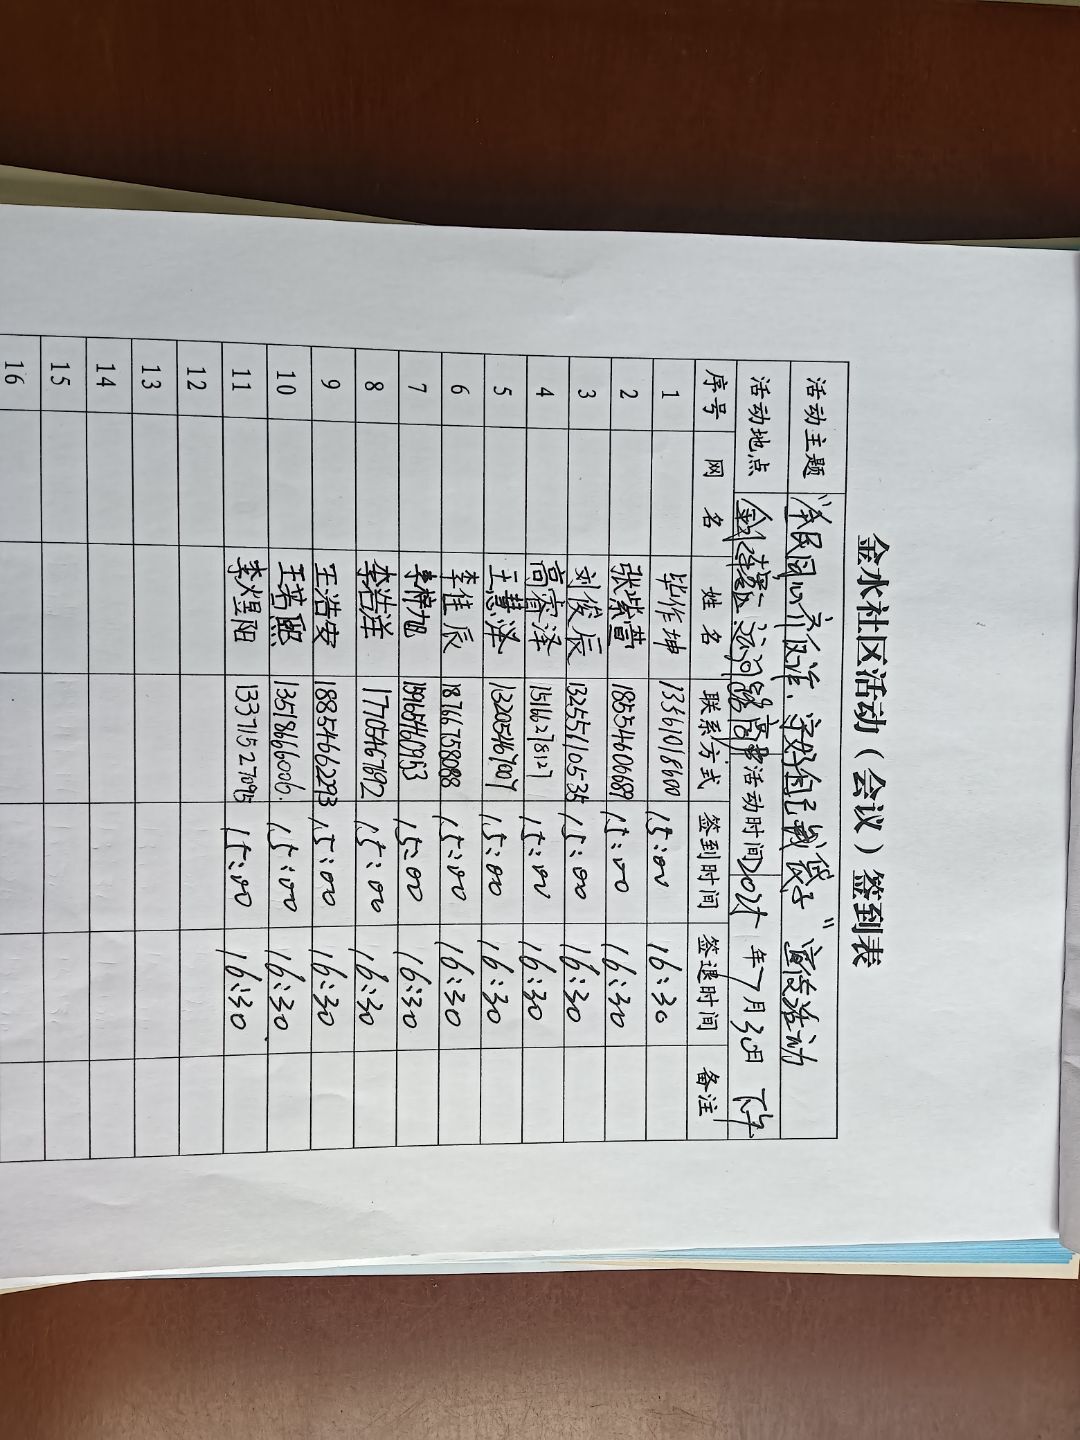 金水社区活动（会议）签到表
活动主题 "全民同心齐反诈，守好自己钱袋子"宣传活动
活动地点 金水社区 活动时间 202 年7月30日 下午
序号 网名 姓名 联系方式 签到时间 签退时间 备注
1 毕作坤 13361018600 15:00 16:30
2 张紫萱 18554606689 15:00 16:30
3 刘俊辰 13255710535 15:00 16:30
4 高睿泽 15166278127 15:00 16:30
5 王慧泽 13205467007 15:00 16:30
6 李佳辰 18766758088 15:00 16:30
7 李梓旭 15:00 16:30
8 李浩洋 17705467692 15:00 16:30
9 王浩安 18854662293 15:00 16:30
10 王若熙 13518666006 15:00 16:30
11 李煜阳 13371527095 15:00 16:30
12
13
14
15
16